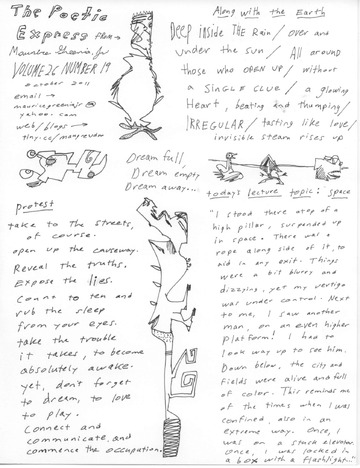 The Poetic
Express from
Maurice Greenia, Jr
VOLUME 26 NUMBER 19
october 2011
email →
mauricegreeniajr@
yahoo.com
web/blogs →
tiny.cc/maugreudom
Along with the Earth
Deep inside THE Rain/ over and
under the sun/ All around
those who OPEN UP/ without
a SINGLE CLUE/ a glowing
Heart, beating and thumping/
IRREGULAR/ tasting like love/
invisible steam rises up
Dream full,
Dream empty
Dream away...
protest
take to the streets,
of course.
open up the causeway.
Reveal the truths.
Expose the lies.
Count to ten and
rub the sleep
from your eyes.
take the trouble
it takes, to become
absolutely awake.
yet, don't forget
to dream, to love
to play.
Connect and
communicate, and
commence the occupation.
today's lecture topic: space
"I stood there atop of a
high pillar, suspended up
in space. There was a
rope along side of it, to
aid in any exit. Things
were a bit blurry and
dizzying, yet my vertigo
was under control. Next
to me, I saw another
man, on an even higher
platform! I had to
look way up to see him.
Down below, the city and
fields were alive and full
of color. This reminds me
of the times when I was
confined, also in an
extreme way. Once, I
was on a stuck elevator.
Once, I was locked in
a box with a flashlight..."